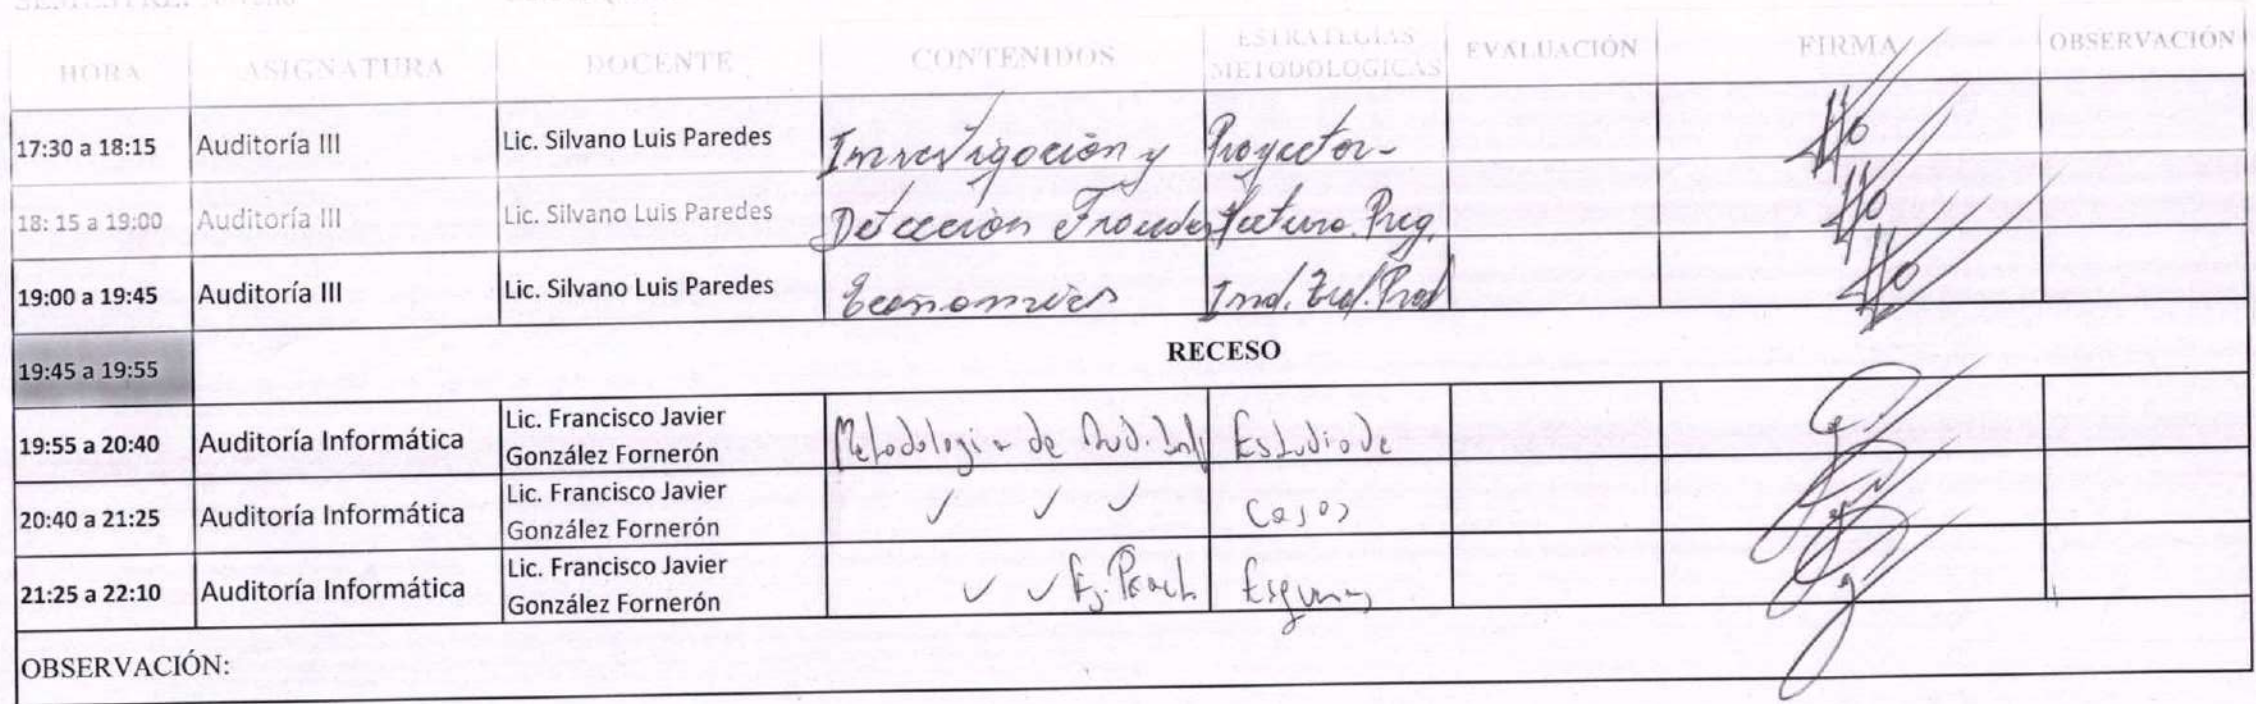 HORA ASIGNATURA DOCENTE CONTENIDOS ESTRATEGIAS METODOLOGICAS EVALUACIÓN FIRMA OBSERVACIÓN
17:30 a 18:15 Auditoría III Lic. Silvano Luis Paredes Investigación y Proyector-
18:15 a 19:00 Auditoría III Lic. Silvano Luis Paredes Detección Fraudes Lectura. Preg.
19:00 a 19:45 Auditoría III Lic. Silvano Luis Paredes Económicos Ind.
19:45 a 19:55 RECESO
19:55 a 20:40 Auditoría Informática Lic. Francisco Javier González Fornerón Metodologia de Aud. Inf Estudio de
20:40 a 21:25 Auditoría Informática Lic. Francisco Javier González Fornerón ✓ ✓ ✓ Casos
21:25 a 22:10 Auditoría Informática Lic. Francisco Javier González Fornerón ✓ ✓ Ej.
OBSERVACIÓN: